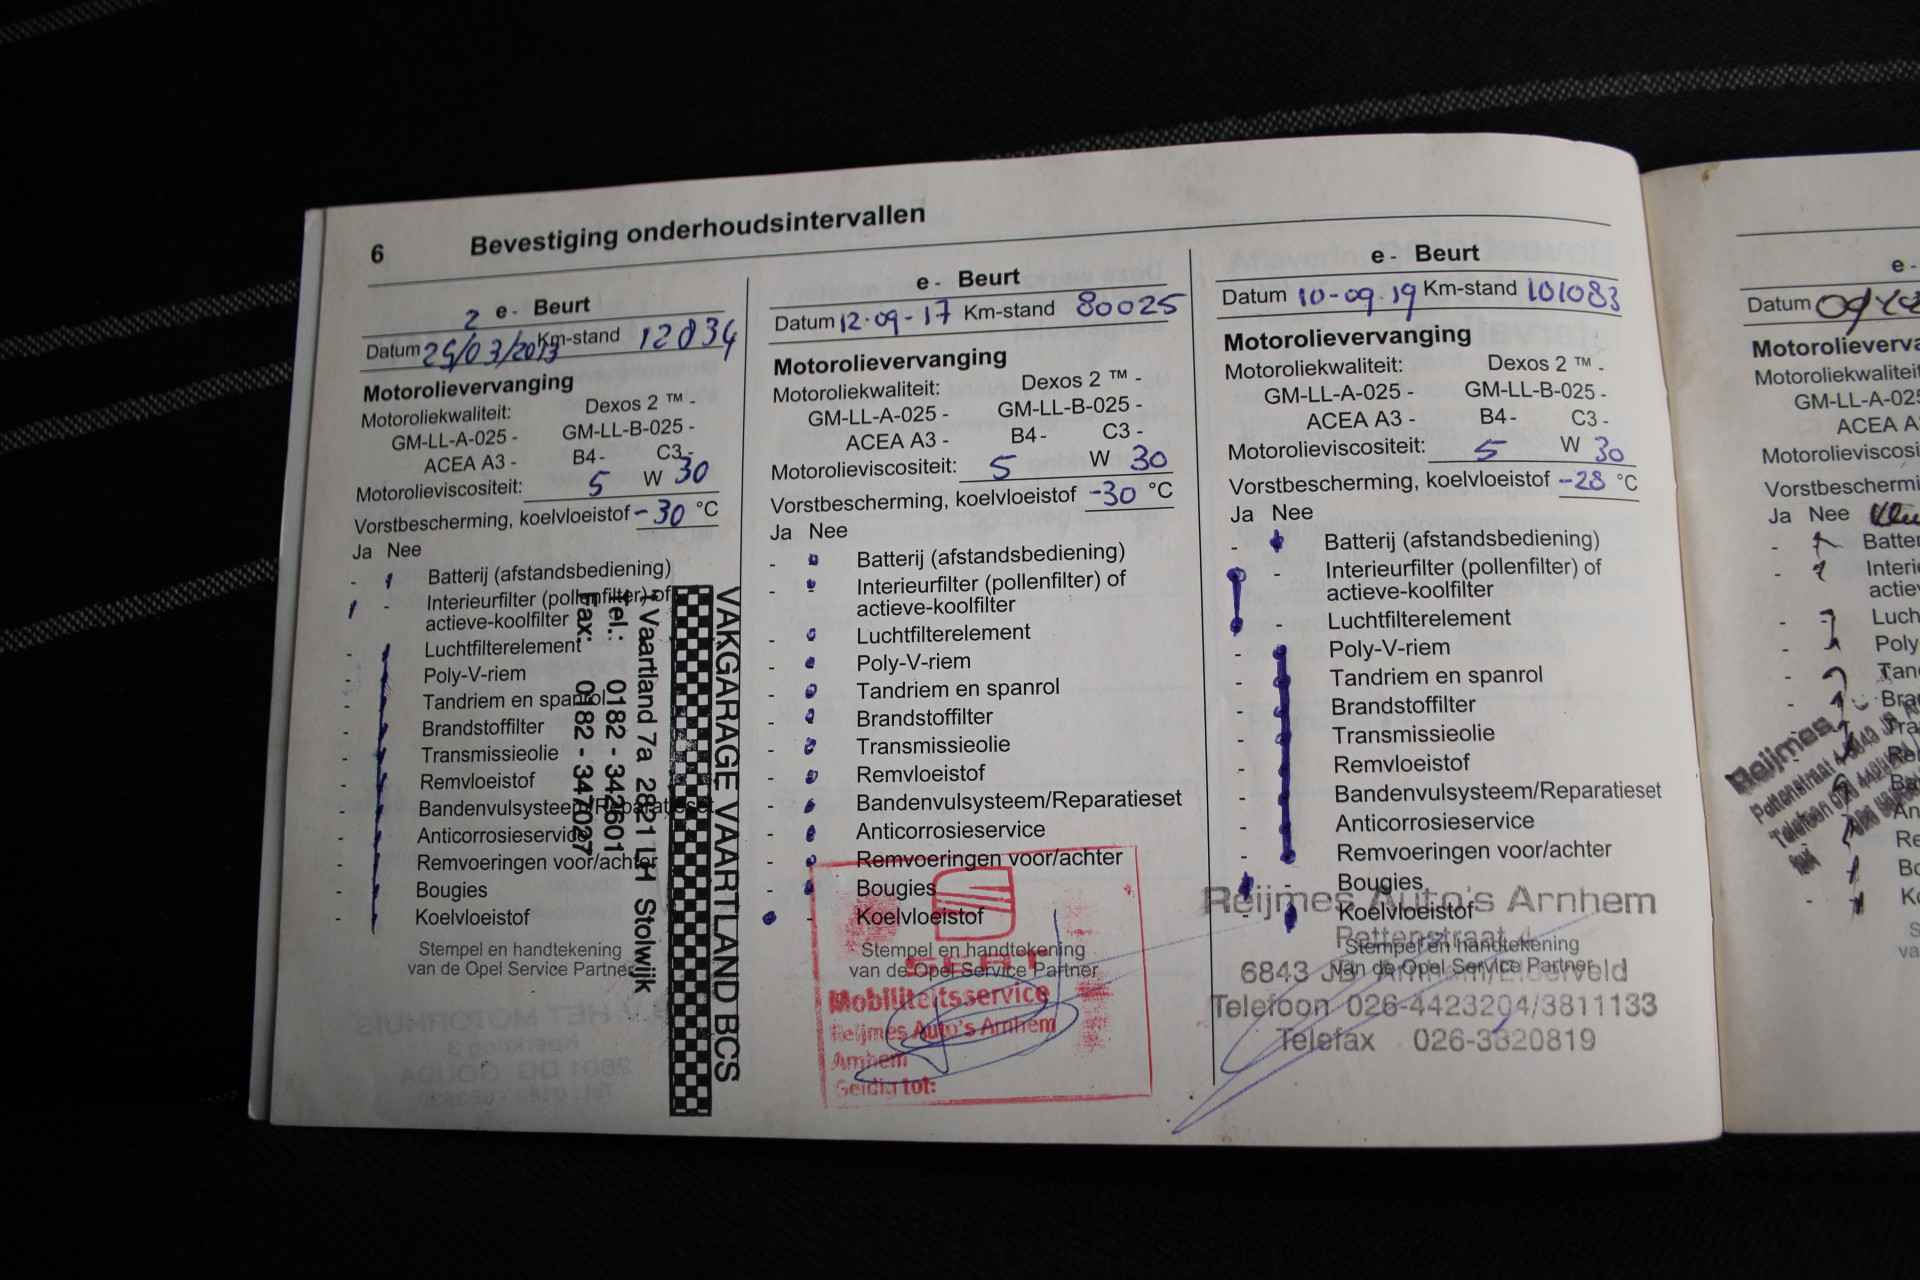 6 Bevestiging onderhoudsintervallen
2 e - Beurt
Datum 25/03/2013 Km-stand 12834
Motorolievervanging
Motoroliekwaliteit: Dexos 2 ™ -
GM-LL-A-025 - GM-LL-B-025 -
ACEA A3 - B4 - C3 -
Motorolieviscositeit: 5 W 30
Vorstbescherming, koelvloeistof -30 °C
Ja Nee
Batterij (afstandsbediening)
Interieurfilter (pollenfilter) of
actieve-koolfilter
Luchtfilterelement
Poly-V-riem
Tandriem en spanrol
Brandstoffilter
Transmissieolie
Remvloeistof
Bandenvulsysteem/Reparatieset
Anticorrosieservice
Remvoeringen voor/achter
Bougies
Koelvloeistof
Stempel en handtekening
van de Opel Service Partner
VAKGARAGE VAARTLAND BCS
't Vaartland 7a 2821 LH Stolwijk
Tel.: 0182 - 342601
Fax: 0182 - 347027
e - Beurt
Datum 12-09-17 Km-stand 80025
Motorolievervanging
Motoroliekwaliteit: Dexos 2 ™ -
GM-LL-A-025 - GM-LL-B-025 -
ACEA A3 - B4 - C3 -
Motorolieviscositeit: 5 W 30
Vorstbescherming, koelvloeistof -30 °C
Ja Nee
Batterij (afstandsbediening)
Interieurfilter (pollenfilter) of
actieve-koolfilter
Luchtfilterelement
Poly-V-riem
Tandriem en spanrol
Brandstoffilter
Transmissieolie
Remvloeistof
Bandenvulsysteem/Reparatieset
Anticorrosieservice
Remvoeringen voor/achter
Bougies
Koelvloeistof
Stempel en handtekening
van de Opel Service Partner
SEAT
Mobiliteitsservice
Reijmes Auto's Arnhem
Arnhem
Geldig tot:
e - Beurt
Datum 10-09-19 Km-stand 101083
Motorolievervanging
Motoroliekwaliteit: Dexos 2 ™ -
GM-LL-A-025 - GM-LL-B-025 -
ACEA A3 - B4 - C3 -
Motorolieviscositeit: 5 W 30
Vorstbescherming, koelvloeistof -28 °C
Ja Nee
Batterij (afstandsbediening)
Interieurfilter (pollenfilter) of
actieve-koolfilter
Luchtfilterelement
Poly-V-riem
Tandriem en spanrol
Brandstoffilter
Transmissieolie
Remvloeistof
Bandenvulsysteem/Reparatieset
Anticorrosieservice
Remvoeringen voor/achter
Bougies
Koelvloeistof
Stempel en handtekening
van de Opel Service Partner
Reijmes Auto's Arnhem
Pettenstraat 4
6843 JD Arnhem/Elderveld
Telefoon 026-4423204/3811133
Telefax 026-3820819
e -
Datum
Motorolieverva
Motoroliekwaliteit
GM-LL-A-025
ACEA A
Motorolieviscosi
Vorstbeschermi
Ja Nee
Batter
Interie
actieve
Luch
Poly
Tan
Bra
Tra
Re
Ba
An
Re
Bo
Ko
Reijmes
Pettenstraat 4
Telefoon